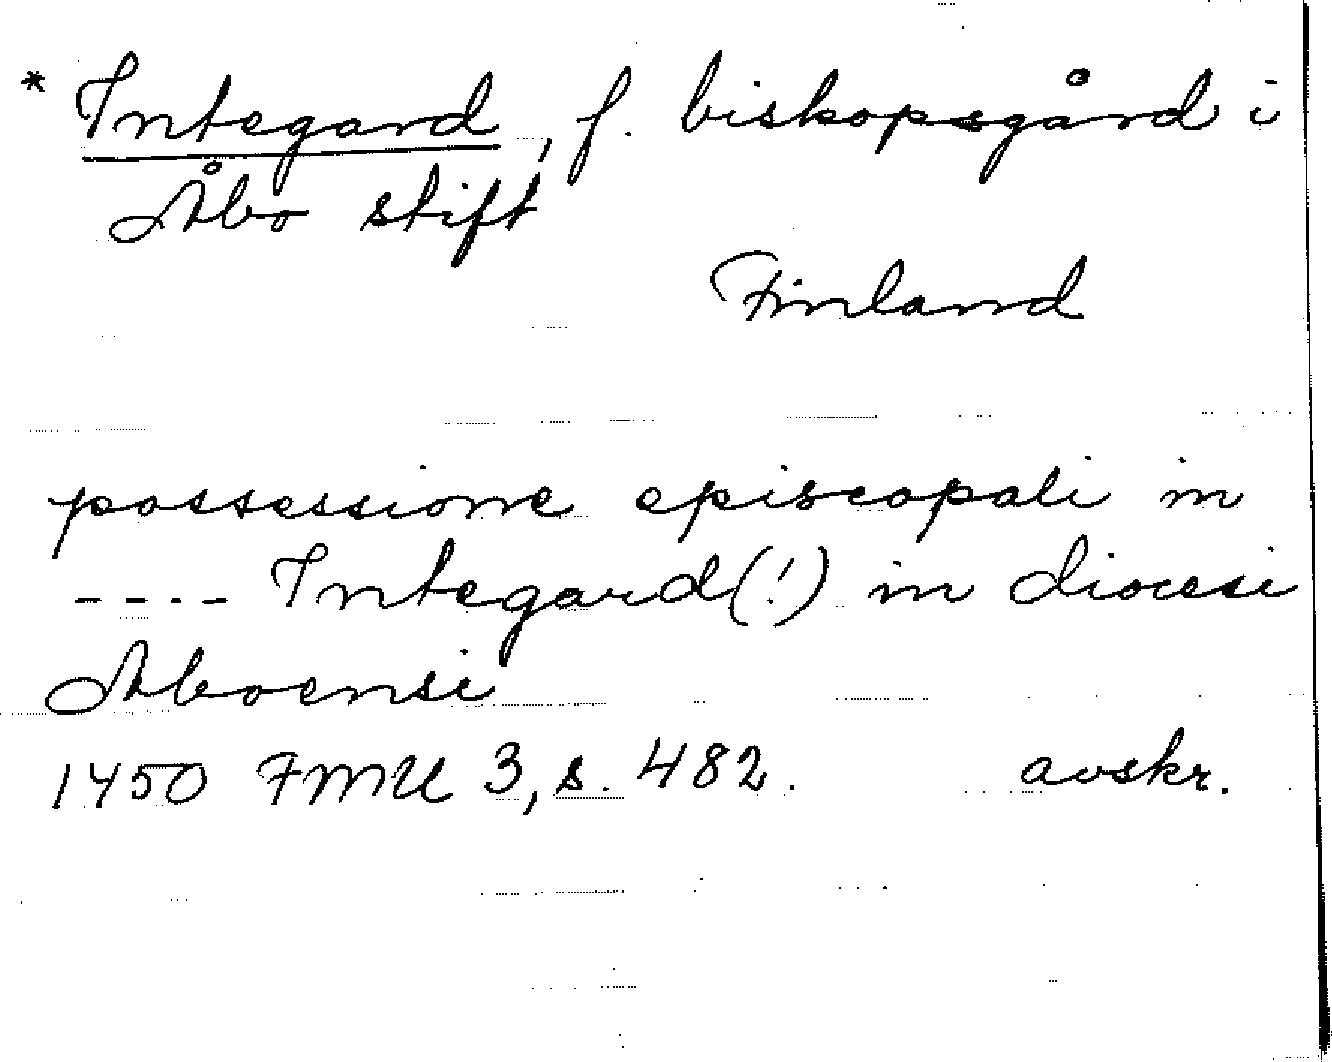 * Integard, f. biskopsgård i
Åbo stift
Finland
possessione episcopali in
---- Integard(!) in diocesi
Aboensi
1450 FMU 3, s. 482. avskr.